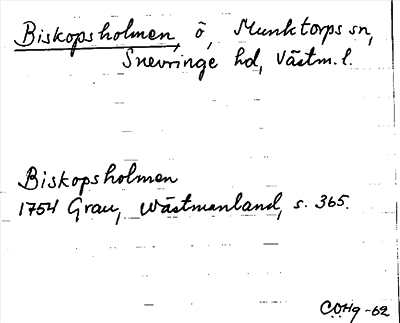 Biskopsholmen, ö, Munktorps sn,
Snevringe hd, Västm. l.
Biskopsholmen
1754 Grau, Wästmanland, s. 365.
COHg -62